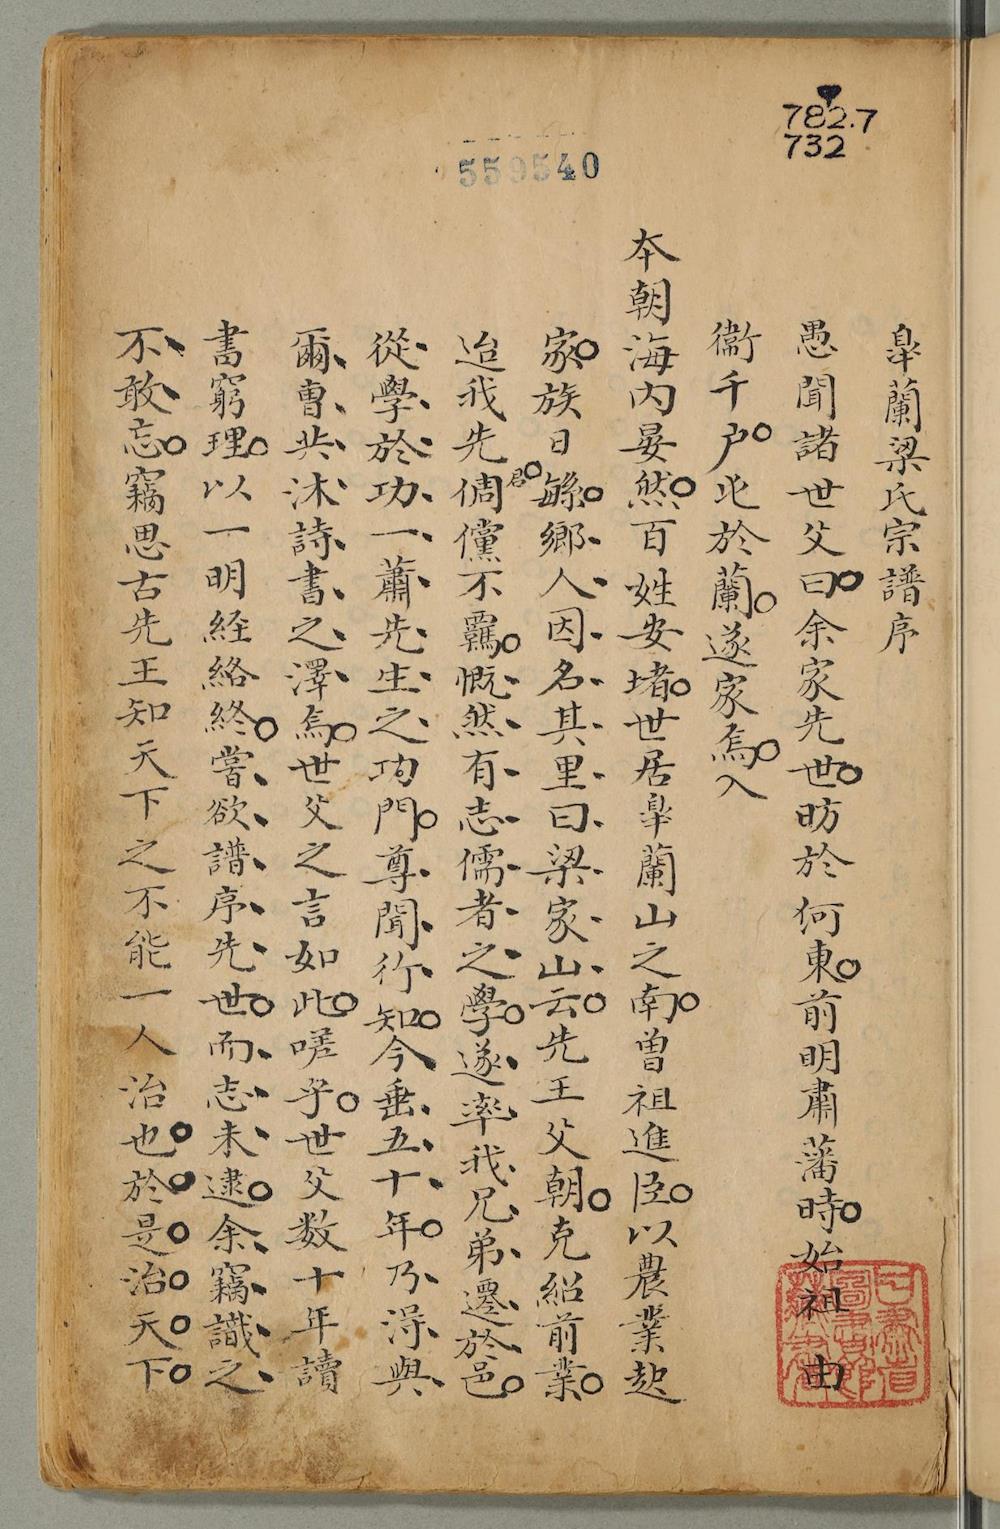 782.7
732
559540
皐蘭梁氏宗譜序
愚聞諸世父曰余家先世昉於何東前明肅藩時始祖由
衞千户北於蘭遂家焉入
本朝海内晏然百姓安堵世居皐蘭山之南曾祖進臣以農業起
家族日繇鄉人因名其里曰梁家山云先王父朝克紹前業
迨我先君倜儻不羈慨然有志儒者之學遂率我兄弟遷於邑
從學於功一蕭先生之功門尊聞行知今垂五十年乃得與
爾曹共沐詩書之澤焉世父之言如此嗟乎世父数十年讀
書窮理以一明経絡終嘗欲譜序先世而志未逮余竊識之
不敢忘竊思古先王知天下之不能一人治也於是治天下